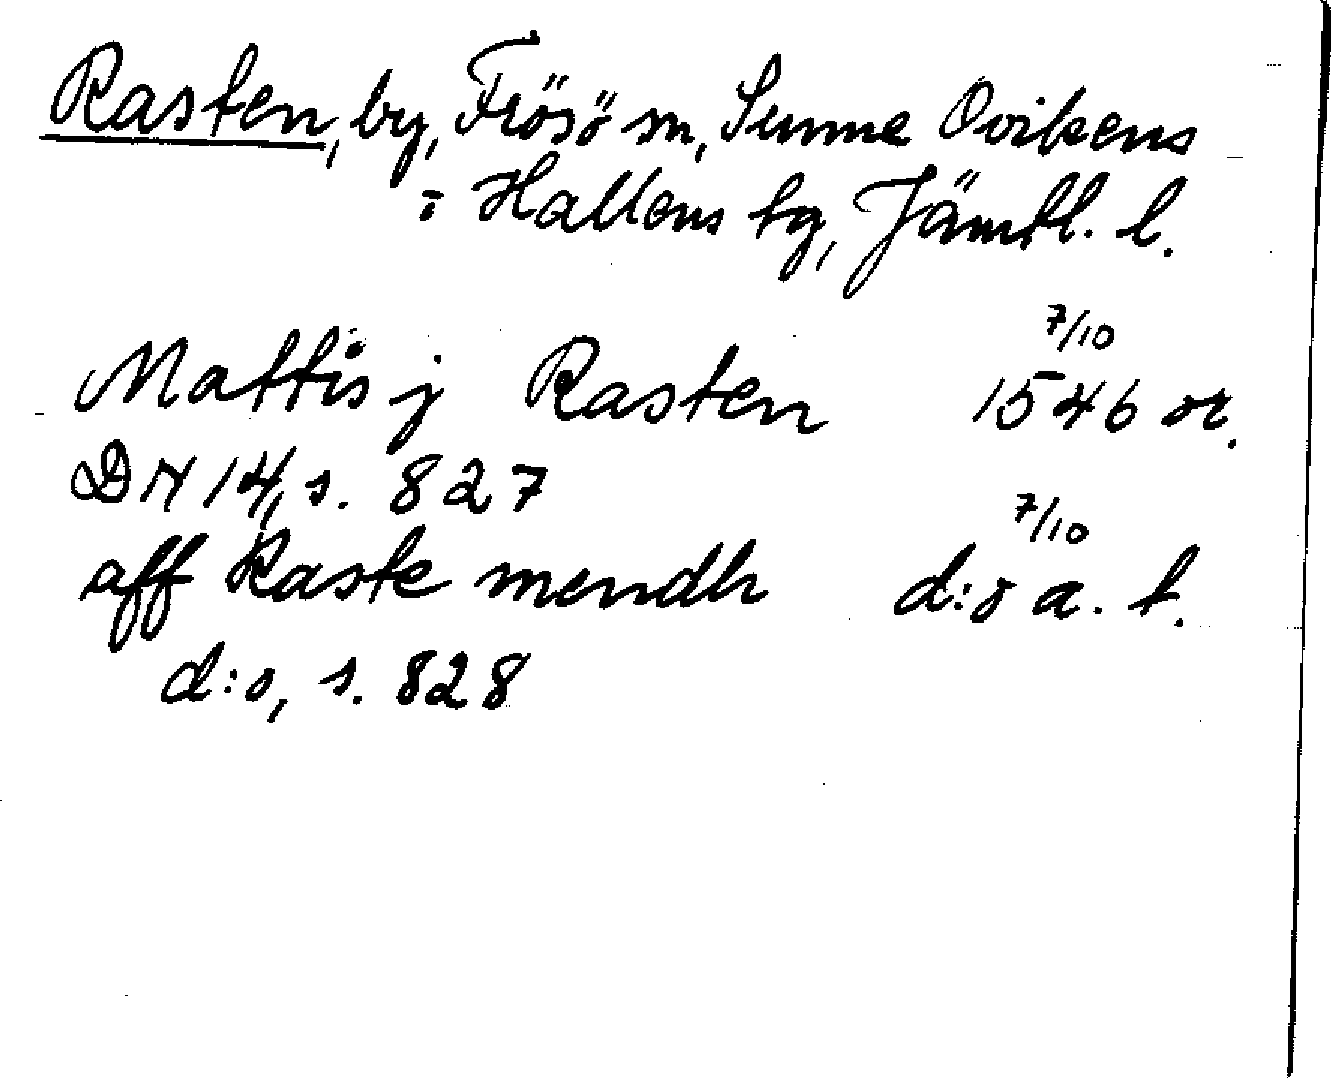 Rasten, by, Frösö sn, Sunne Ovikens
: Hallens tg, Jämtl. l.
Mattis j Rasten 7/10 1546 or.
DN 14, s. 827
aff Raste mendh 7/10 d:o a. t.
d:o, s. 828